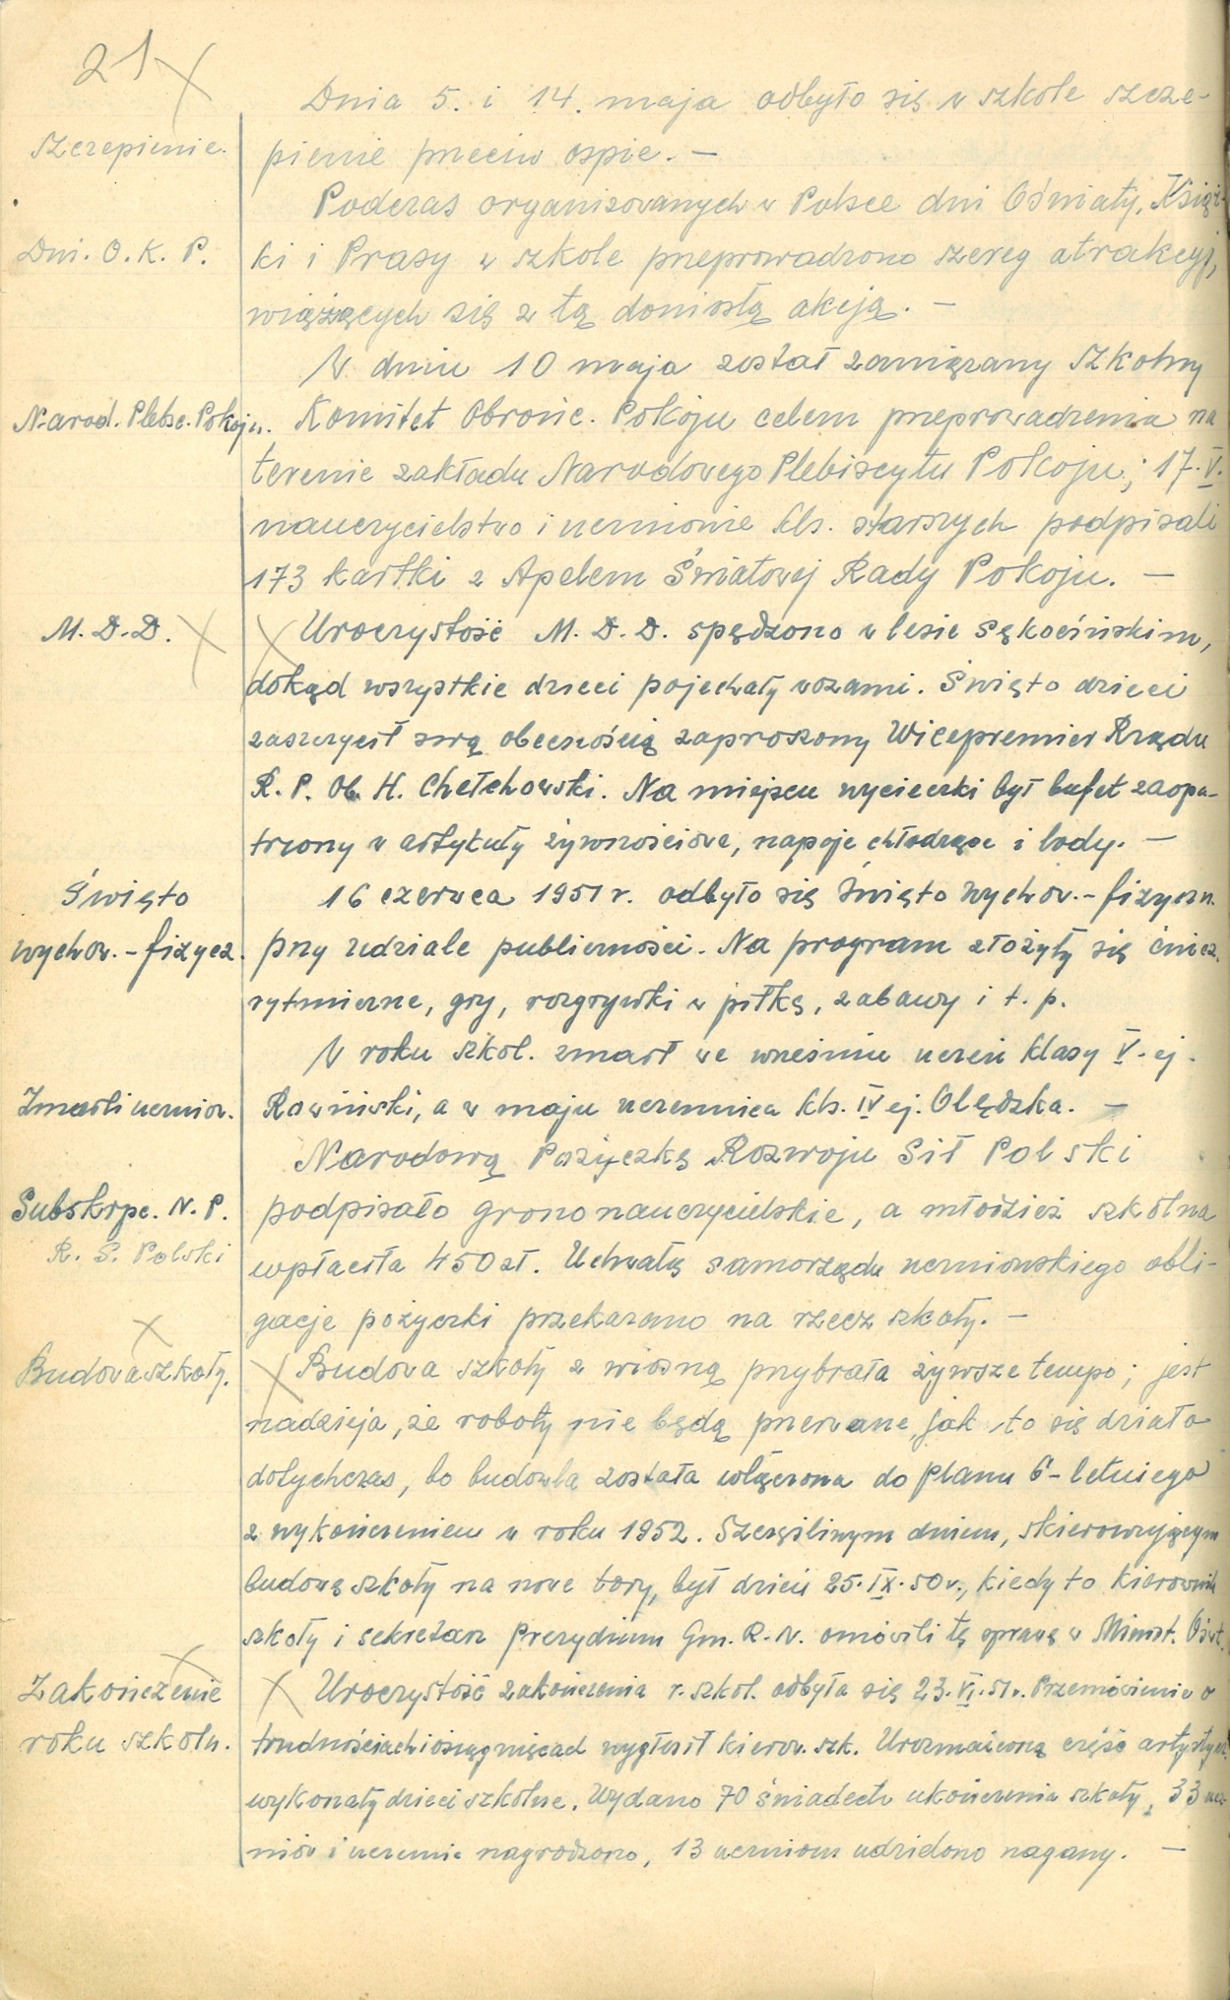 21
Dnia 5. i 14. maja odbyło się w szkole szcze-
Szczepienie. pienie przeciw ospie. —
Podczas organizowanych w Polsce dni Oświaty, Książ-
Dni. O. K. P. ki i Prasy w szkole przeprowadzono szereg atrakcyj,
wiążących się z tą doniosłą akcją. —
W dniu 10 maja został zawiązany Szkolny
Narod. Plebsc. Pokoju. Komitet Obrońc. Pokoju celem przeprowadzenia na
terenie zakładu Narodowego Plebiscytu Pokoju; 17. V.
nauczycielstwo i uczniowie kls. starszych podpisali
173 kartki z Apelem Światowej Rady Pokoju. —
M. D. D. Uroczystość M. D. D. spędzono w lesie Sękocińskim,
dokąd wszystkie dzieci pojechały wozami. Święto dzieci
zaszczycił swą obecnością zaproszony Wicepremier Rządu
R. P. Ob. H. Chełchowski. Na miejscu wycieczki był bufet zaopa-
trzony w artykuły żywnościowe, napoje chłodzące i lody. —
Święto 16 czerwca 1951 r. odbyło się święto wychow.-fizyczn.
wychow.-fizycz. przy udziale publiczności. Na program złożyły się ćwicz.
rytmiczne, gry, rozgrywki w piłkę, zabawy i t. p.
W roku szkol. zmarł we wrześniu uczeń klasy V-ej.
Zmarli uczniow. Rawiński, a w maju uczennica kls. IV ej. Olędzka. —
Narodową Pożyczkę Rozwoju Sił Polski
Subskrpc. N. P. podpisało grono nauczycielskie, a młodzież szkolna
R. S. Polski wpłaciła 450 zł. Uchwałą samorządu uczniowskiego obli-
gacje pożyczki przekazano na rzecz szkoły. —
Budowa szkoły. Budowa szkoły z wiosną przybrała żywsze tempo; jest
nadzieja, że roboty nie będą przerwane, jak to się działo
dotychczas, bo budowla została włączona do planu 6-letniego
z wykończeniem w roku 1952. Szczęśliwym dniem, skierowującym
budowę szkoły na nowe tory, był dzień 25. IX. 50 r., kiedy to kierownik
szkoły i sekretarz Prezydium Gm. R. N. omówili tę sprawę w Minist. Ośw.
Zakończenie Uroczystość zakończenia r. szkol. odbyła się 23. VI. 51 r. Przemówienie o
roku szkoln. trudnościach i osiągnięciach wygłosił kierow. szk. Urozmaiconą część artystycz.
wykonały dzieci szkolne. Wydano 70 świadectw ukończenia szkoły, 33 ucz-
niów i uczennic nagrodzono, 13 uczniom udzielono nagany. —